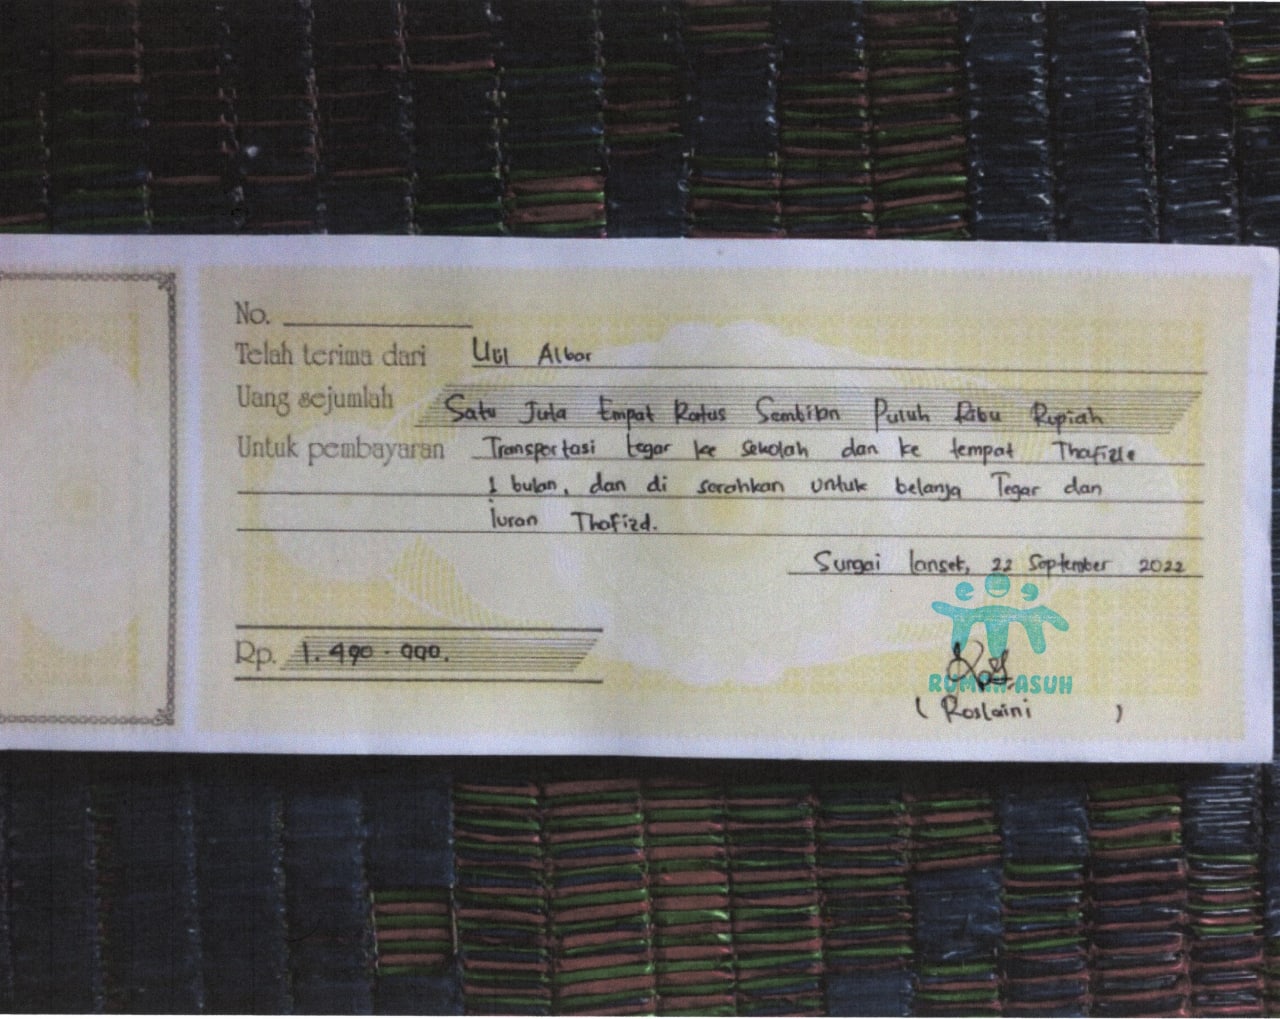 No.
Telah terima dari Uul Albar
Uang sejumlah Satu Juta Empat Ratus Sembilan Puluh Ribu Rupiah
Untuk pembayaran Transportasi tegar ke sekolah dan ke tempat
1 bulan, dan di serahkan untuk belanja Tegar dan
Iuran Thafizd.
Sungai lanset, 22 September 2022
Rp. 1.490.000.
RUMAH ASUH
( Roslaini )